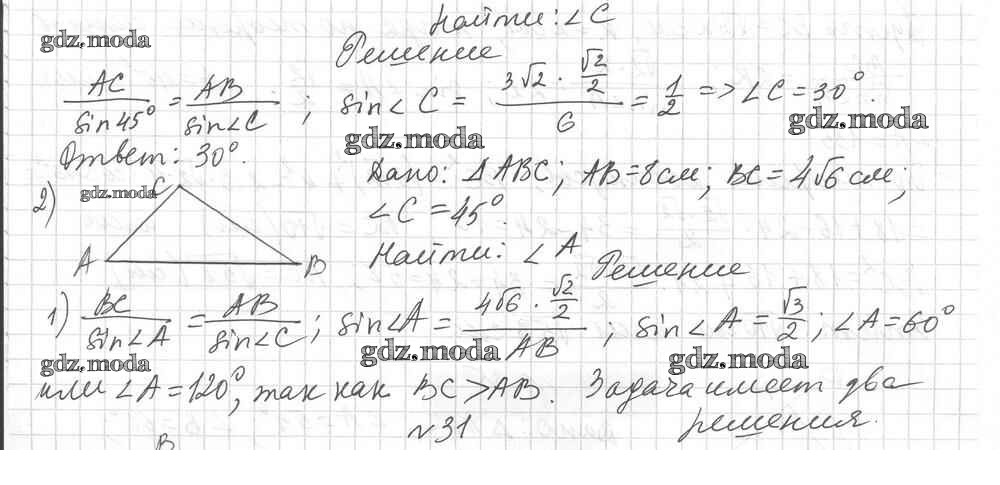 Найти: ∠C
gdz.moda
Решение
AC/sin45° = AB/sin∠C ; sin∠C = (3√2 · √2/2)/6 = 1/2 => ∠C = 30°.
gdz.moda
gdz.moda
Ответ: 30°.
Дано: ΔABC; AB=8см; BC=4√6 см;
2)
gdz.moda
C
A
B
∠C = 45°.
Найти: ∠A
Решение
1) BC/sin∠A = AB/sin∠C ; sin∠A = (4√6 · √2/2)/AB ; sin∠A = √3/2 ; ∠A=60°
gdz.moda
gdz.moda
gdz.moda
или ∠A=120°, так как BC>AB. Задача имеет два
решения.
№31
B